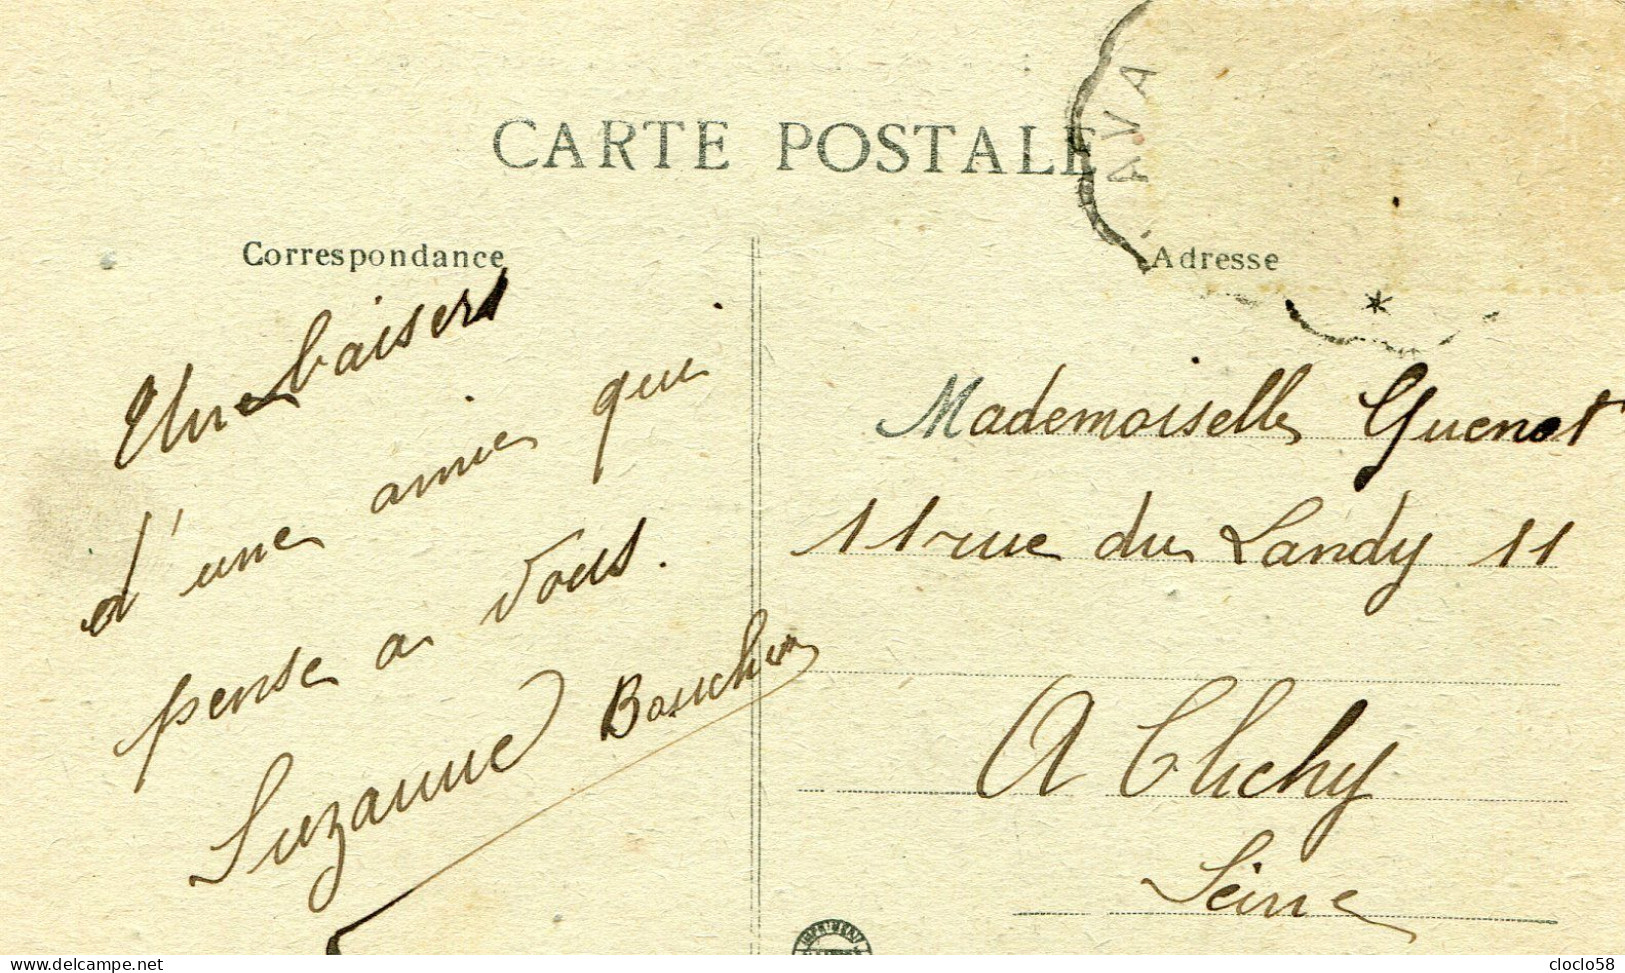 CARTE POSTALE
AVA
Correspondance
Adresse
Une baisers
d'une amie qui
pense a vous.
Suzanne
Mademoiselle Guenot
11 rue du Landy 11
A Clichy
Seine
IMPRIMERI
https://www.delcampe.net
cloclo58